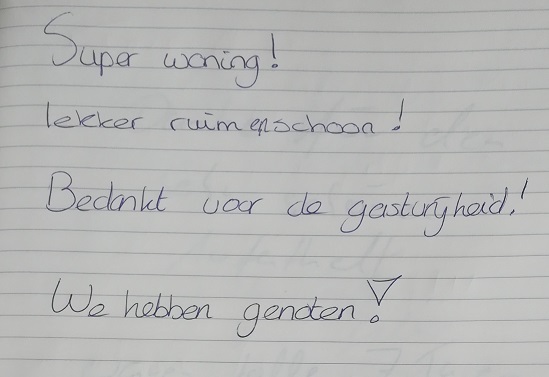 Super woning!
lekker ruim en schoon!
Bedankt voor de gastvrijheid!
We hebben genoten!